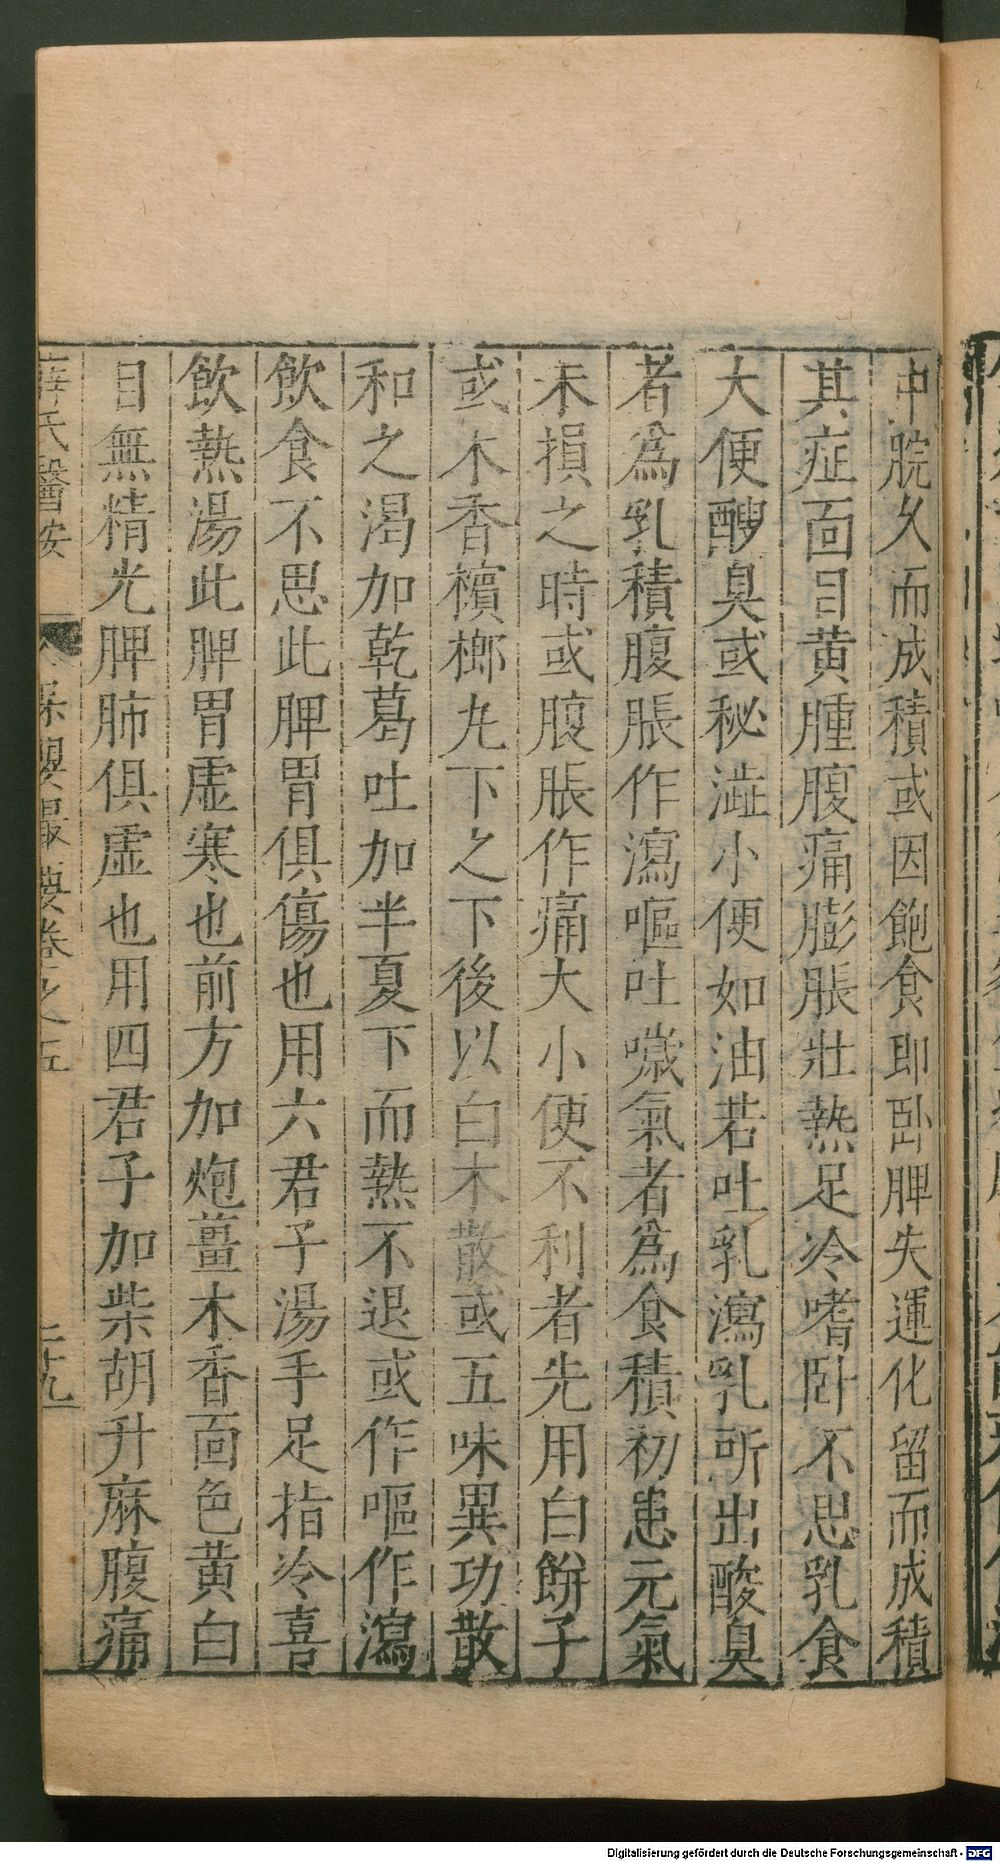 中脘久而成積或因飽食即臥脾失運化留而成積
其症面目黄腫腹痛膨脹壯熱足冷嗜卧不思乳食
大便醙臭或秘澁小便如油若吐乳瀉乳所出酸臭
者爲乳積腹脹作瀉嘔吐噦氣者爲食積初患元氣
未損之時或腹脹作痛大小便不利者先用白餅子
或木香檳榔丸下之下後以白术散或五味異功散
和之渴加乾葛吐加半夏下而熱不退或作嘔作瀉
飲食不思此脾胃俱傷也用六君子湯手足指冷喜
飲熱湯此脾胃虛寒也前方加炮薑木香面色黄白
目無精光脾肺俱虛也用四君子加柴胡升麻腹痛
薛氏醫按 保嬰撮要卷之五 二十九
Digitalisierung gefördert durch die Deutsche Forschungsgemeinschaft - DFG